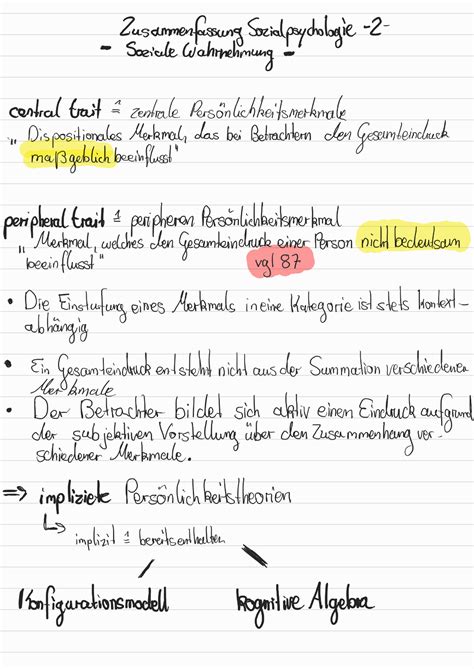 Zusammenfassung Sozialpsychologie -2-
- Soziale Wahrnehmung -
central trait ≙ zentrale Persönlichkeitsmerkmale
„Dispositionales Merkmal, das bei Betrachtern den Gesamteindruck
maßgeblich beeinflusst"
peripheral trait ≙ peripheren Persönlichkeitsmerkmal
„Merkmal, welches den Gesamteindruck einer Person nicht bedeutsam
beeinflusst"
vgl 87
• Die Einstufung eines Merkmals in eine Kategorie ist stets kontext-
abhängig
• Ein Gesamteindruck entsteht nicht aus der Summation verschiedener
Merkmale
• Der Betrachter bildet sich aktiv einen Eindruck aufgrund
der subjektiven Vorstellung über den Zusammenhang ver-
schiedener Merkmale.
=> impliziete Persönlichkeitstheorien
↳ implizit ≙ bereits enthalten
Konfigurationsmodell kognitive Algebra